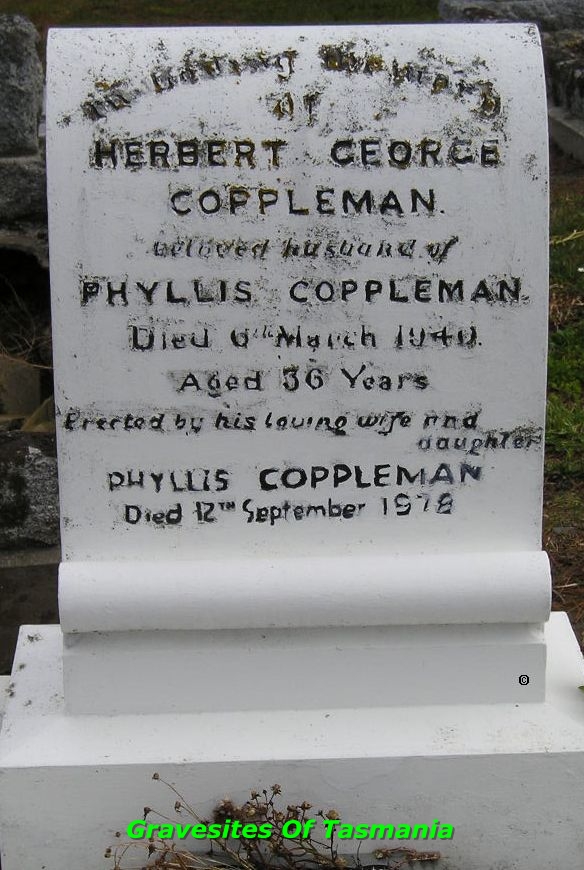 In Loving Memory
of
HERBERT GEORGE
COPPLEMAN.
beloved husband of
PHYLLIS COPPLEMAN.
Died 6th March 1940.
Aged 36 Years
Erected by his loving wife and
daughter
PHYLLIS COPPLEMAN
Died 12TH September 1978
©
Gravesites Of Tasmania